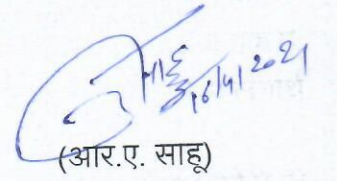 साहू
16/4/2021
(आर.ए. साहू)